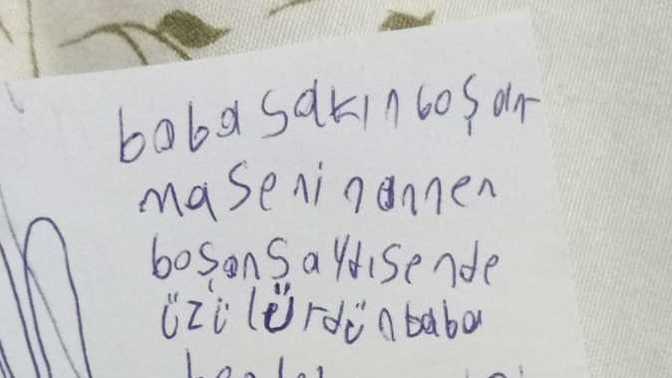 baba sakın boşan
ma senin annen
boşansaydı sende
üzülürdün baba